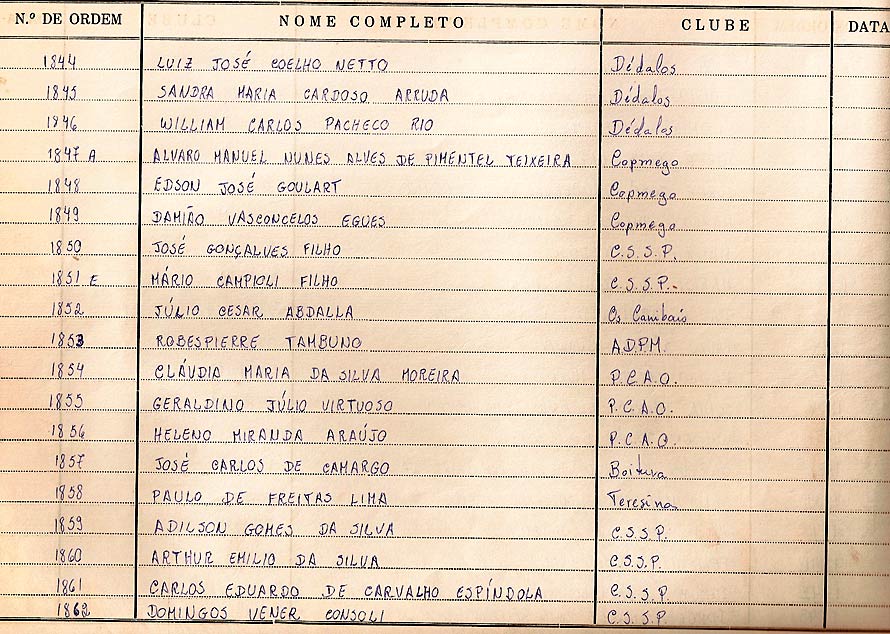 N.º DE ORDEM NOME COMPLETO CLUBE DATA
1844 LUIZ JOSÉ COELHO NETTO Dédalos
1845 SANDRA MARIA CARDOSO ARRUDA Dédalos
1846 WILLIAM CARLOS PACHECO RIO Dédalos
1847 A ALVARO MANUEL NUNES ALVES DE PIMENTEL TEIXEIRA Copmego
1848 EDSON JOSÉ GOULART Copmego
1849 DAMIÃO VASCONCELOS EGUES Copmego
1850 JOSÉ GONÇALVES FILHO C.S.S.P.
1851 E MÁRIO CAMPIOLI FILHO C.S.S.P.
1852 JÚLIO CESAR ABDALLA Os Canibais
1853 ROBESPIERRE TAMBUNO A.D.P.M.
1854 CLÁUDIA MARIA DA SILVA MOREIRA P.C.A.O.
1855 GERALDINO JÚLIO VIRTUOSO P.C.A.O.
1856 HELENO MIRANDA ARAÚJO P.C.A.O.
1857 JOSÉ CARLOS DE CAMARGO Boituva
1858 PAULO DE FREITAS LIMA Teresina
1859 ADILSON GOMES DA SILVA C.S.S.P.
1860 ARTHUR EMILIO DA SILVA C.S.S.P.
1861 CARLOS EDUARDO DE CARVALHO ESPÍNDOLA C.S.S.P.
1862 DOMINGOS VENER CONSOLI C.S.S.P